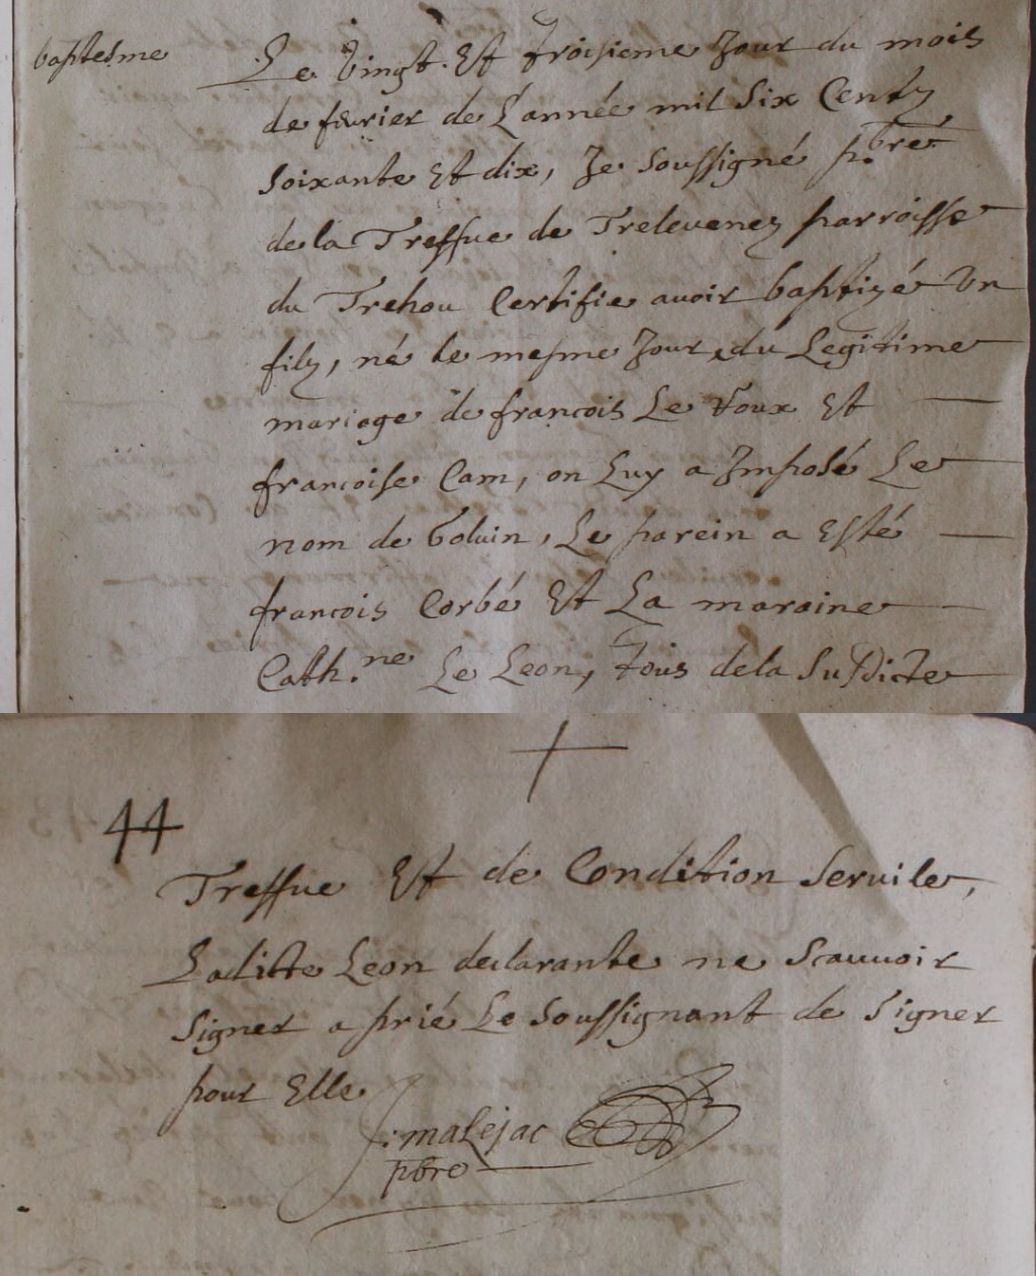 baptesme
Le vingt Et troisieme Jour du mois
de feurier de L'année mil Six Centz
Soixante Et dix, Je Soussigné pbre
de la Treffue de Treleuenez parroisse
du Trehou Certifie auoir baptizé Un
filz, né le mesme Jour, du Legitime
mariage de francois Le Roux Et
francoise Cam, on Luy a Imposé Le
nom de Goluin, Le parein a Esté
francois Corbé Et La maraine
Cath.ne Le Leon, tous de la Susdicte
44
Treffue Et de Condition Seruile,
Laditte Leon declarante ne Scauuoir
Signer a prié Le Soussignant de Signer
pour Elle.
malejac
pbre